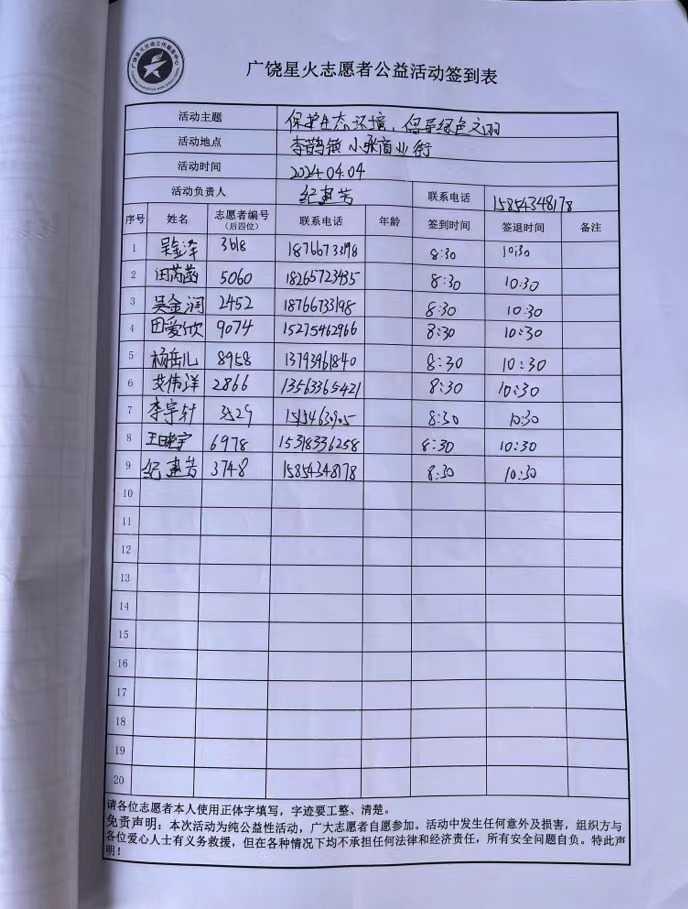 广饶星火志愿者公益活动签到表
活动主题 保护生态环境，倡导绿色文明
活动地点 李鹊镇小张商业街
活动时间 2024.04.04
活动负责人 纪建芳 联系电话 15854348178
序号 姓名 志愿者编号（后四位） 联系电话 年龄 签到时间 签退时间 备注
1 吴金泽 3618 18766733198 8:30 10:30
2 田芮菡 5060 18265723435 8:30 10:30
3 吴金润 2452 18766733198 8:30 10:30
4 田爱欣 9074 15275462966 8:30 10:30
5 杨岳儿 8958 13793961840 8:30 10:30
6 艾伟洋 2866 13563365421 8:30 10:30
7 李宇轩 3529 8:30 10:30
8 6978 15318336258 8:30 10:30
9 纪建芳 3748 15854348178 8:30 10:30
10
11
12
13
14
15
16
17
18
19
20
请各位志愿者本人使用正体字填写，字迹要工整、清楚。
免责声明：本次活动为纯公益性活动，广大志愿者自愿参加。活动中发生任何意外及损害，组织方与
各位爱心人士有义务救援，但在各种情况下均不承担任何法律和经济责任，所有安全问题自负。特此声
明！